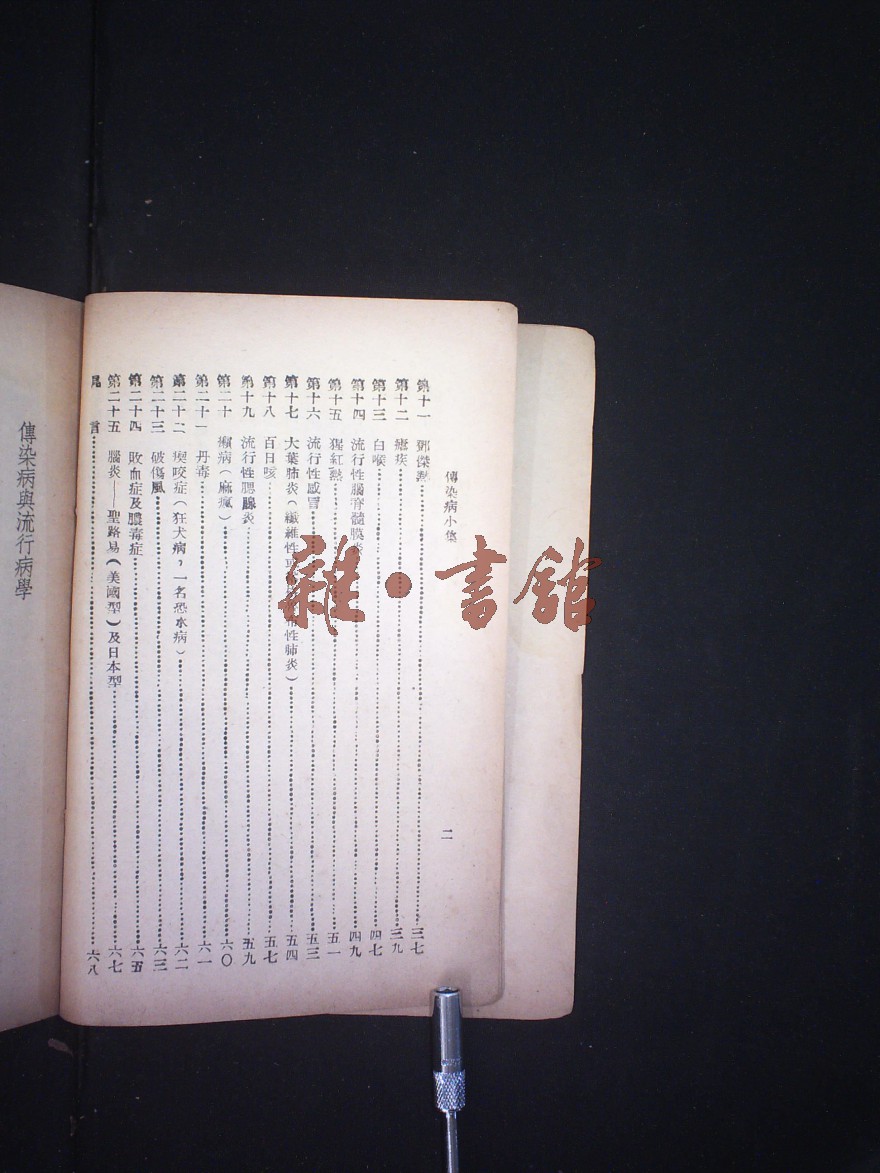 傳染病小集
二
第十一 鄧傑熱 三七
第十二 瘧疾 三九
第十三 白喉 四七
第十四 流行性腦脊髓膜炎 四九
第十五 猩紅熱 五一
第十六 流行性感冒 五三
第十七 大葉肺炎(纖維性或 性肺炎) 五四
第十八 百日咳 五七
第十九 流行性腮腺炎 五九
第二十 癩病(麻瘋) 六〇
第二十一 丹毒 六一
第二十二 瘈咬症(狂犬病,一名恐水病) 六二
第二十三 破傷風 六三
第二十四 敗血症及膿毒症 六五
第二十五 腦炎——聖路易(美國型)及日本型 六七
尾言 六八
傳染病與流行病學
雜·書館